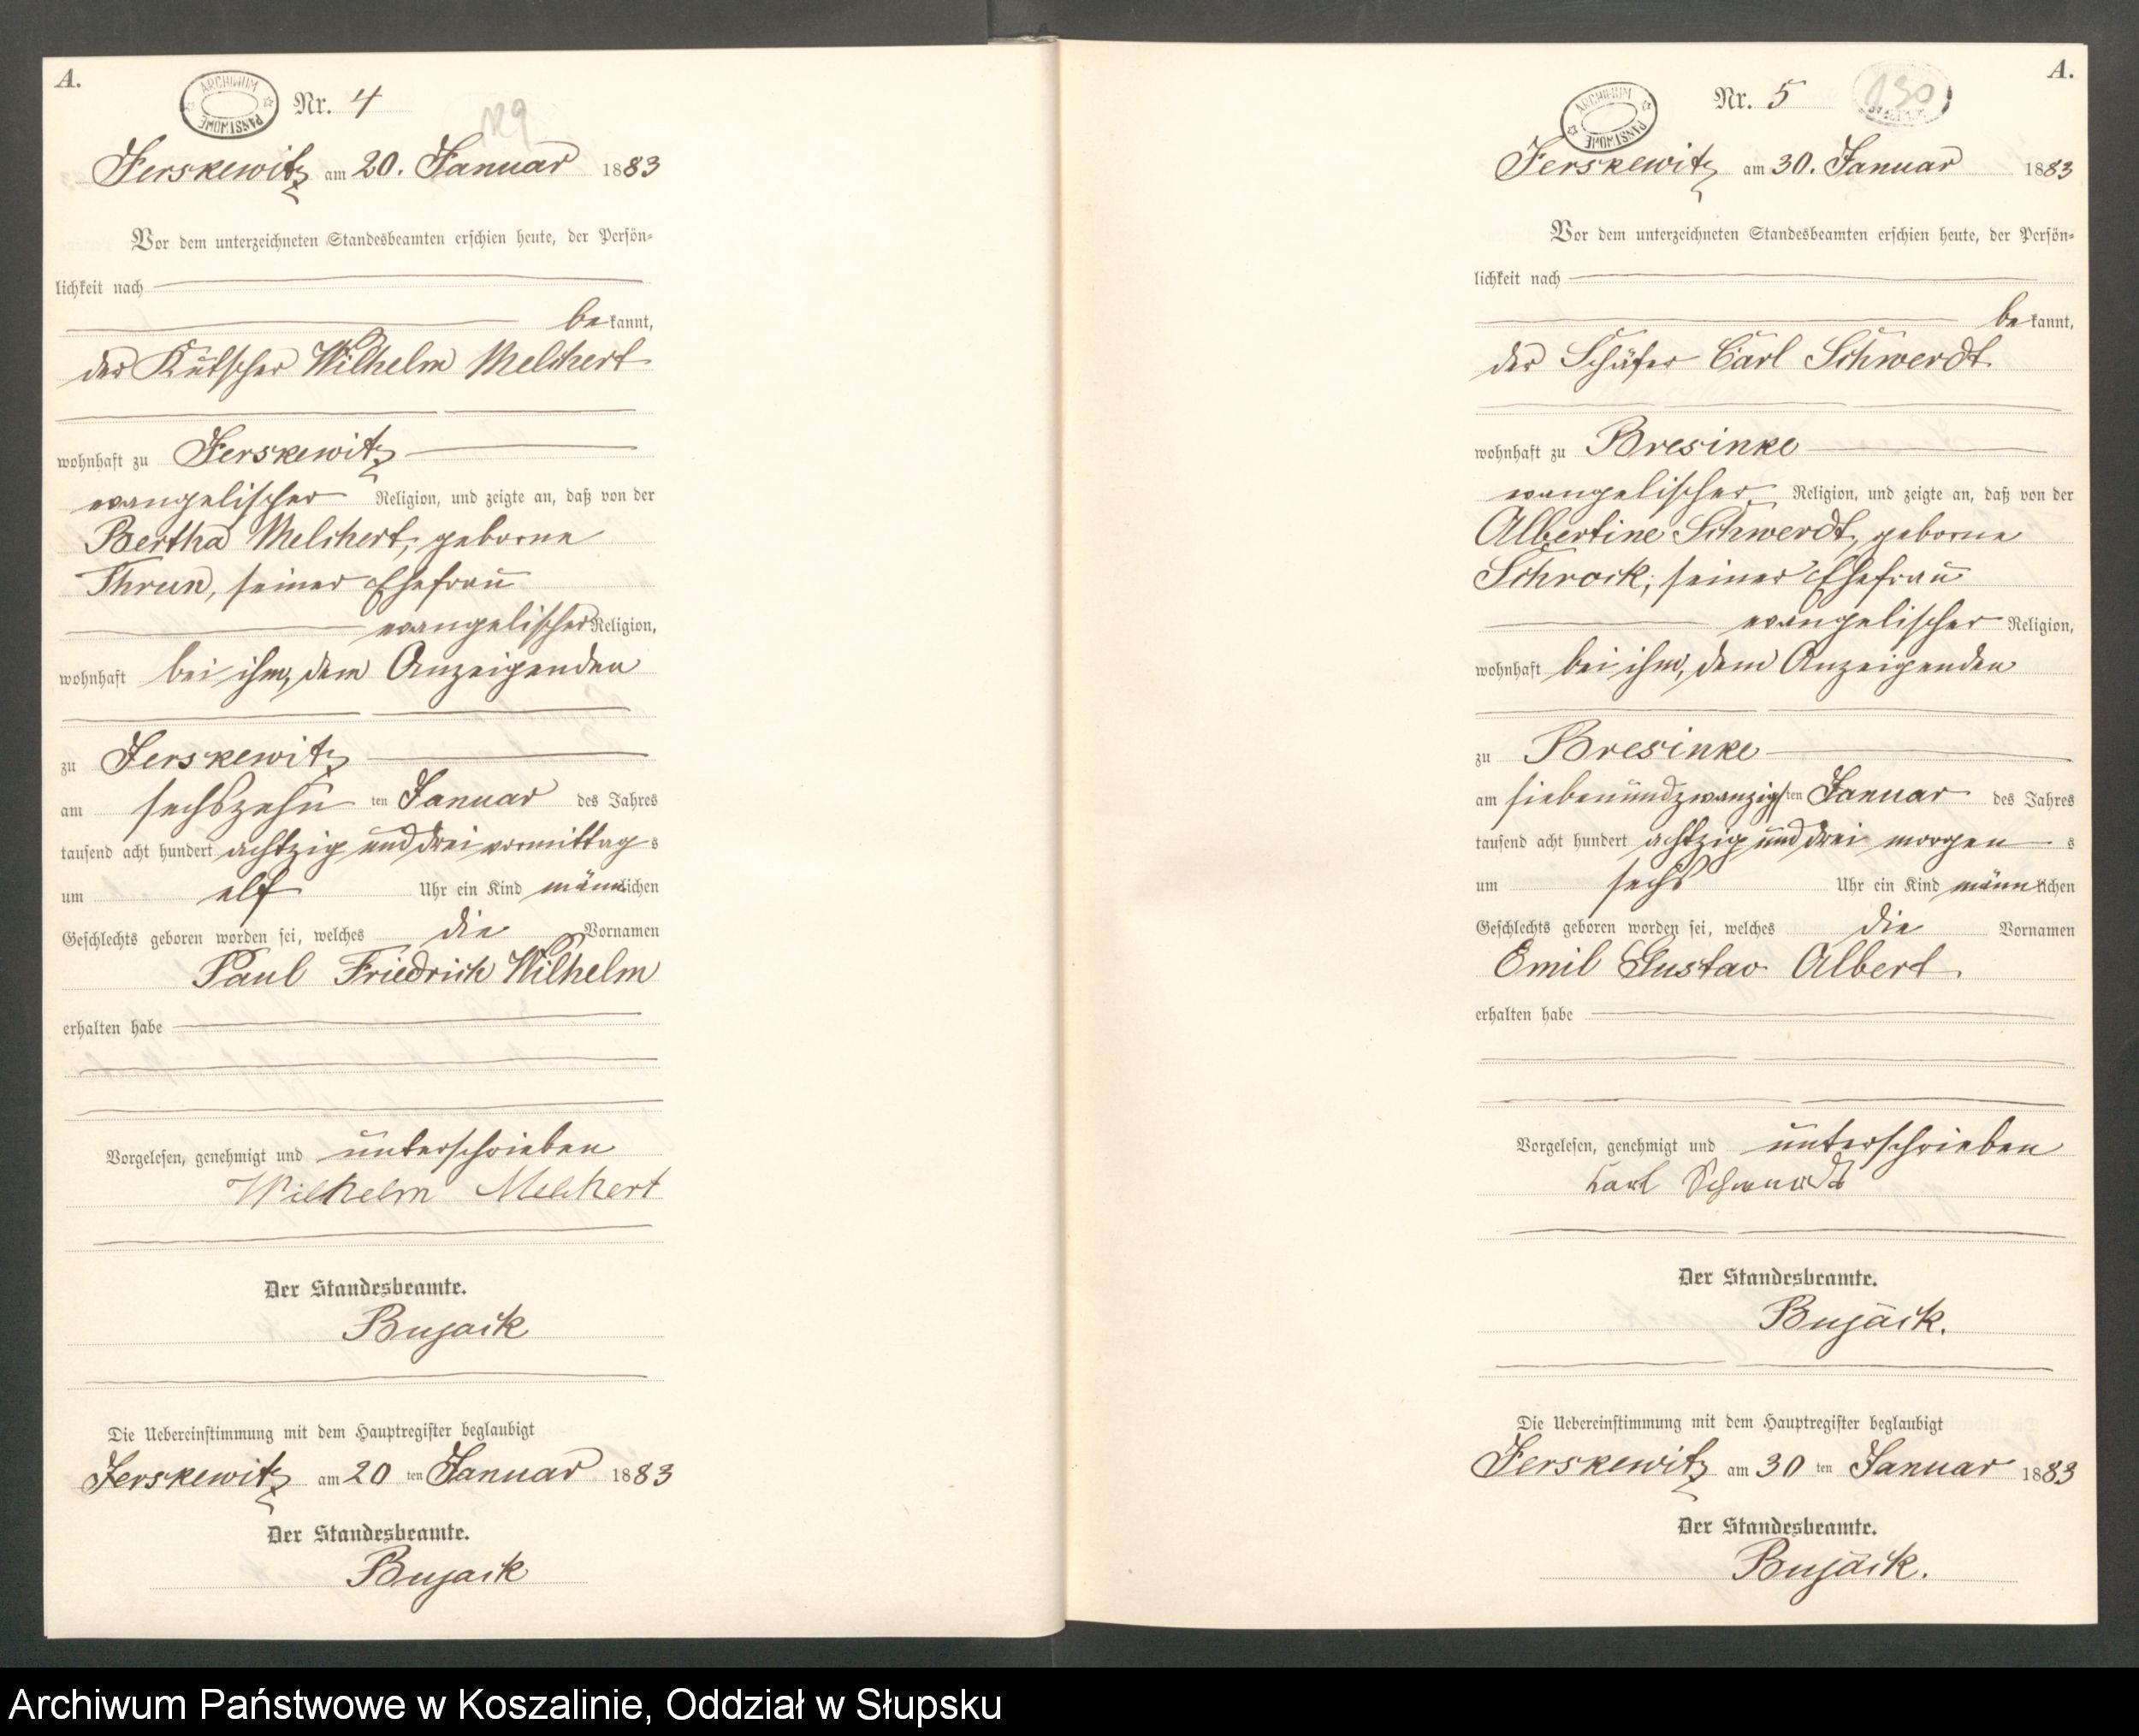 A.
ARCHIWUM PAŃSTWOWE
Nr. 4
129
Jerskewitz am 20. Januar 1883
Vor dem unterzeichneten Standesbeamten erschien heute, der Persön-
lichkeit nach
bekannt,
der Kutscher Wilhelm Melchert
wohnhaft zu Jerskewitz
evangelischer Religion, und zeigte an, daß von der
Bertha Melchert, geborne
Thrun, seiner Ehefrau
evangelischer Religion,
wohnhaft bei ihm, dem Anzeigenden
zu Jerskewitz
am sechszehnten Januar des Jahres
tausend acht hundert achtzig und drei vormittags
um elf Uhr ein Kind männlichen
Geschlechts geboren worden sei, welches die Vornamen
Paul Friedrich Wilhelm
erhalten habe
Vorgelesen, genehmigt und unterschrieben
Wilhelm Melchert
Der Standesbeamte.
Bujack
Die Uebereinstimmung mit dem Hauptregister beglaubigt
Jerskewitz am 20ten Januar 1883
Der Standesbeamte.
Bujack
A.
ARCHIWUM PAŃSTWOWE
Nr. 5
130
Jerskewitz am 30. Januar 1883
Vor dem unterzeichneten Standesbeamten erschien heute, der Persön-
lichkeit nach
bekannt,
der Schäfer Carl Schwerdt
wohnhaft zu Bresinke
evangelischer Religion, und zeigte an, daß von der
Albertine Schwerdt, geborne
Schrock, seiner Ehefrau
evangelischer Religion,
wohnhaft bei ihm, dem Anzeigenden
zu Bresinke
am siebenundzwanzigsten Januar des Jahres
tausend acht hundert achtzig und drei morgens
um sechs Uhr ein Kind männlichen
Geschlechts geboren worden sei, welches die Vornamen
Emil Gustav Albert
erhalten habe
Vorgelesen, genehmigt und unterschrieben
Karl Schwerdt
Der Standesbeamte.
Bujack.
Die Uebereinstimmung mit dem Hauptregister beglaubigt
Jerskewitz am 30ten Januar 1883
Der Standesbeamte.
Bujack.
Archiwum Państwowe w Koszalinie, Oddział w Słupsku